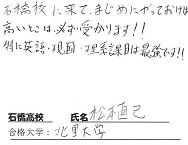 石橋校に来て、まじめにやっておけば
高いとこは、必ず受かります!!
特に英語・現国・理系課目は最強です!!
石橋高校 氏名 松本直己
合格大学:北里大学